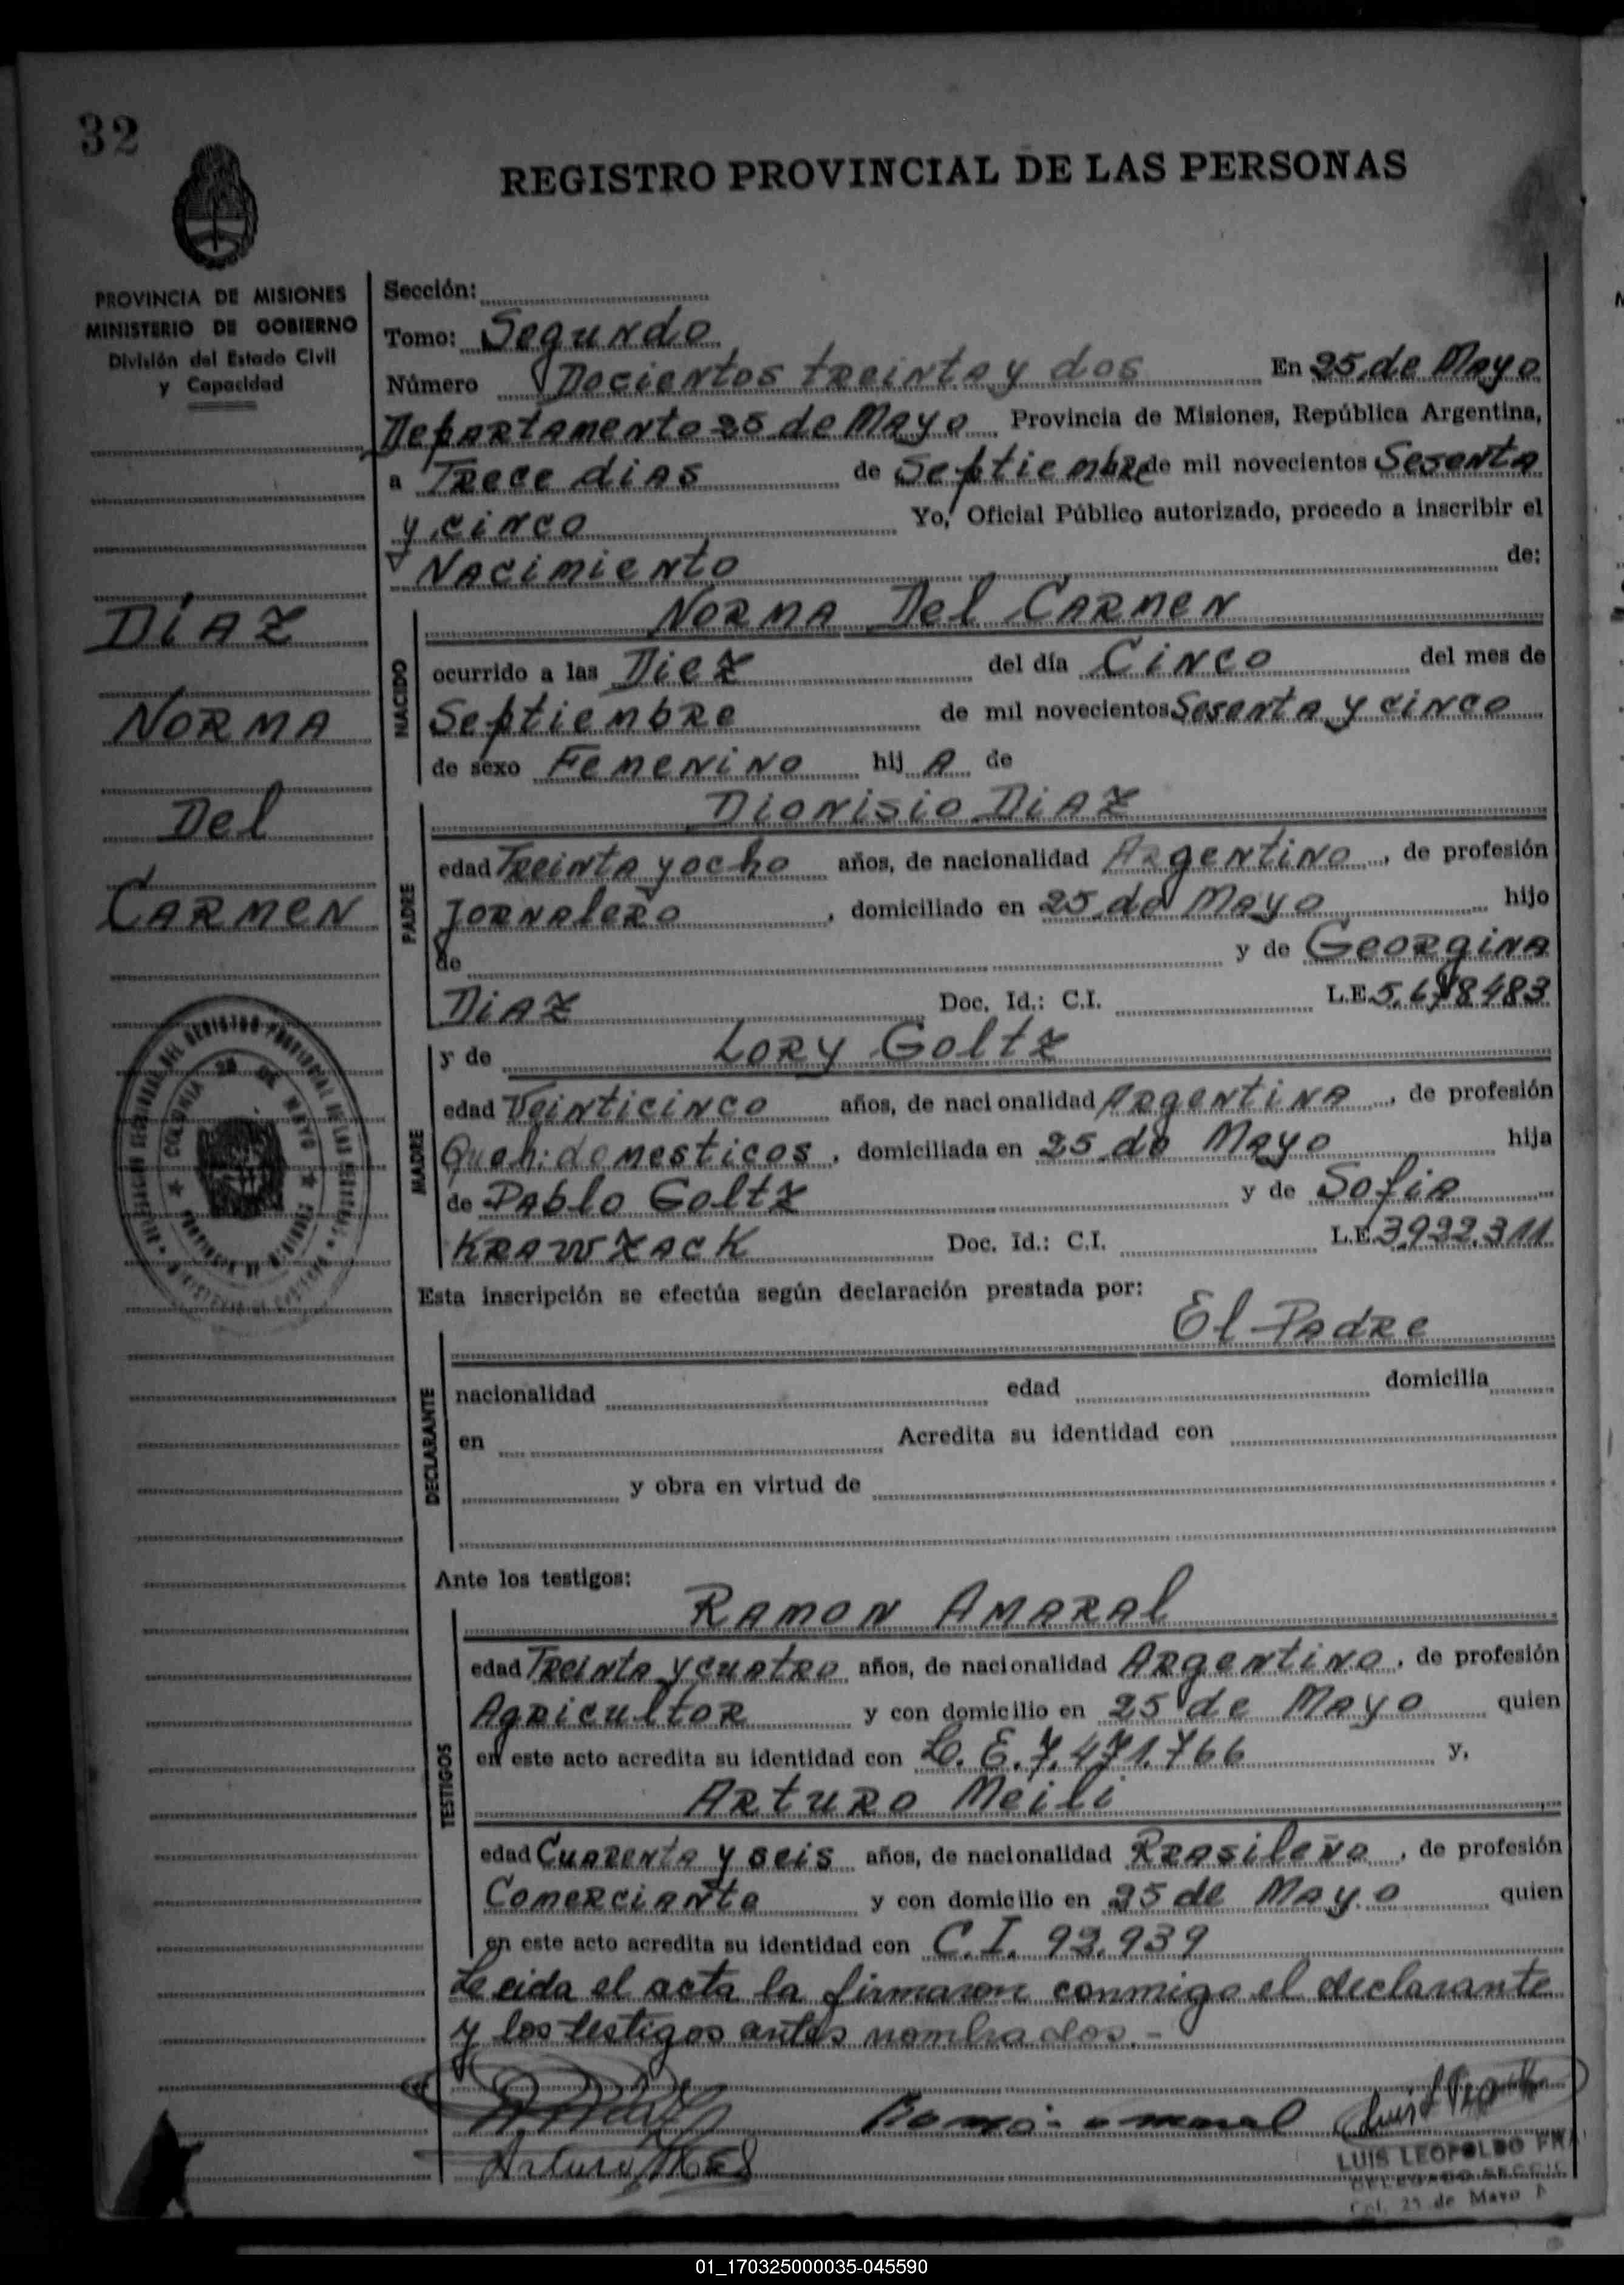 32
REGISTRO PROVINCIAL DE LAS PERSONAS
PROVINCIA DE MISIONES
MINISTERIO DE GOBIERNO
División del Estado Civil
y Capacidad
Sección:
Tomo: Segundo
Número Docientos treinta y dos En 25 de Mayo
Departamento 25 de Mayo Provincia de Misiones, República Argentina,
a Trece dias de Septiembre de mil novecientos Sesenta
y cinco Yo, Oficial Público autorizado, procedo a inscribir el
Nacimiento de:
DÍAZ
NORMA
Del
CARMEN
NACIDO
NORMA Del CARMEN
ocurrido a las Diez del día Cinco del mes de
Septiembre de mil novecientos Sesenta y cinco
de sexo Femenino hij A de
PADRE
Dionisio Diaz
edad Treinta y ocho años, de nacionalidad Argentino, de profesión
Jornalero, domiciliado en 25 de Mayo hijo
de y de Georgina
Diaz Doc. Id.: C.I. L.E.
MADRE
y de Lory Goltz
edad Veinticinco años, de nacionalidad Argentina, de profesión
Queh: domesticos, domiciliada en 25 de Mayo hija
de Pablo Goltz y de Sofia
KRAWZACK Doc. Id.: C.I. L.E. 3.922.311
COLONIA 25 DE MAYO
Esta inscripción se efectúa según declaración prestada por:
DECLARANTE
El Padre
nacionalidad edad domicilia
en Acredita su identidad con
y obra en virtud de
Ante los testigos:
TESTIGOS
Ramon Amaral
edad Treinta y cuatro años, de nacionalidad Argentino, de profesión
Agricultor y con domicilio en 25 de Mayo quien
en este acto acredita su identidad con L.E. 7.471.766 y,
Arturo Meili
edad Cuarenta y seis años, de nacionalidad Brasileño, de profesión
Comerciante y con domicilio en 25 de Mayo quien
en este acto acredita su identidad con C.I. 93.939
Leeida el acta la firmaron conmigo el declarante
y los testigos antes nombrados.-
Ramo amaral
Arturo
LUIS LEOPOLDO
DELEGADO SECCIO
Col. 25 de Mayo
01_170325000035-045590